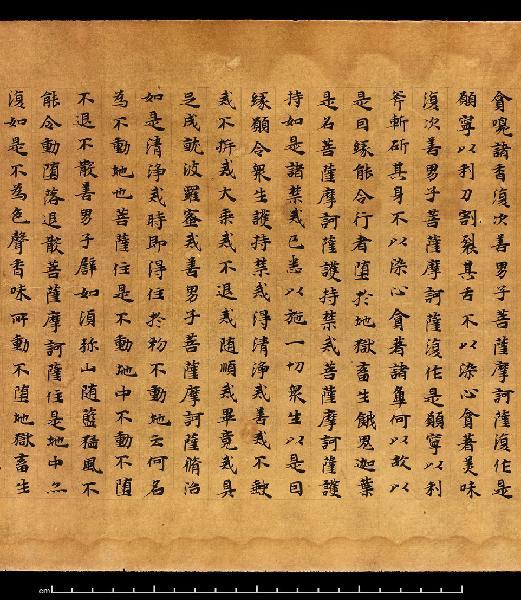 貪嗅諸香復次善男子菩薩摩訶薩復作是
願寧以利刀割裂其舌不以染心貪著美味
復次善男子菩薩摩訶薩復作是願寧以利
斧斬斫其身不以染心貪著諸觸何以故以
是因緣能令行者堕於地獄畜生餓鬼迦葉
是名菩薩摩訶薩護持禁戒菩薩摩訶薩護
持如是諸禁戒已悉以施一切衆生以是因
緣願令衆生護持禁戒得清淨戒善戒不缺
戒不析戒大乘戒不退戒随順戒畢竟戒具
足成就波羅蜜戒善男子菩薩摩訶薩脩治
如是清淨戒時即得住於初不動地云何名
為不動地也菩薩住是不動地中不動不堕
不退不散善男子譬如須弥山随藍猛風不
能令動堕落退散菩薩摩訶薩住是地中亦
復如是不為色聲香味所動不堕地獄畜生
cm